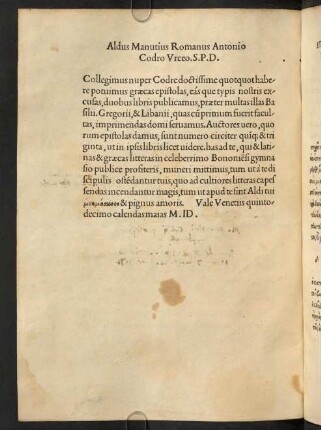 Aldus Manutius Romanus Antonio
Codro Vrceo.S.P.D.
Collegimus nuper Codre doctissime quotquot habe
re potuimus græcas epistolas, eás que typis nostris ex
cusas, duobus libris publicamus, præter multas illas Ba
silii. Gregorii, & Libanii, quas cũ primum fuerit facul
tas, imprimendas domi seruamus. Auctores uero, quo
rum epistolas damus, sunt numero circiter quiq; & tri
ginta, ut in ipsis libris licet uidere. has ad te, qui & lati
nas & græcas litteras in celeberrimo Bononiẽsi gymna
sio publice profiteris, muneri mittimus, tum ut a te di
scipulis ostẽdantur tuis, quo ad cultiores litteras capes
sendas incendantur magis, tum ut apud te sint Aldi tui
μνημόσυνον & pignus amoris. Vale Venetiis quinto
decimo calendas maias M.ID.